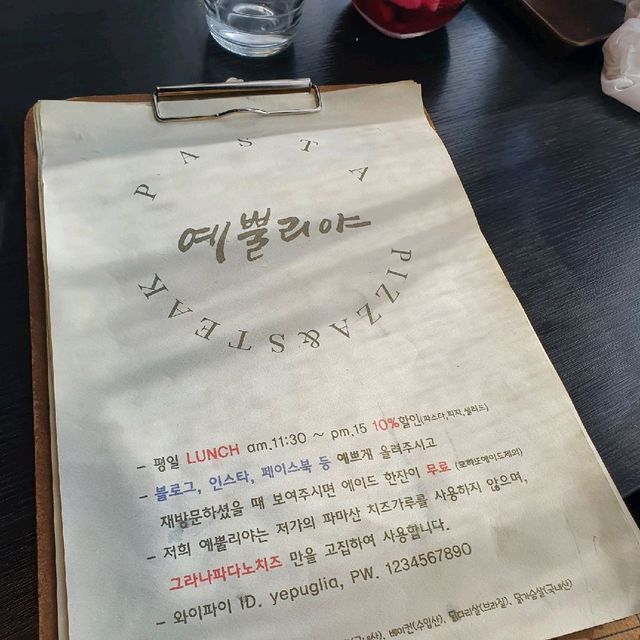 PASTA
예뿔리야
PIZZA&STEAK
- 평일 LUNCH am.11:30 ~ pm.15 10%할인(파스타,피자,샐러드)
- 블로그, 인스타, 페이스북 등 예쁘게 올려주시고
재방문하셨을 때 보여주시면 에이드 한잔이 무료 (모히또에이드제외)
- 저희 예뿔리야는 저가의 파마산 치즈가루를 사용하지 않으며,
그라나파다노치즈 만을 고집하여 사용합니다.
- 와이파이 ID. yepuglia, PW. 1234567890
(국내산), 베이컨(수입산), 닭다리살(브라질), 닭가슴살(국내산)